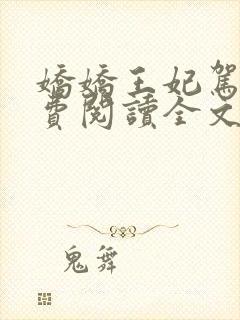 嬌嬌王妃駕
費閱讀全文
鬼舞